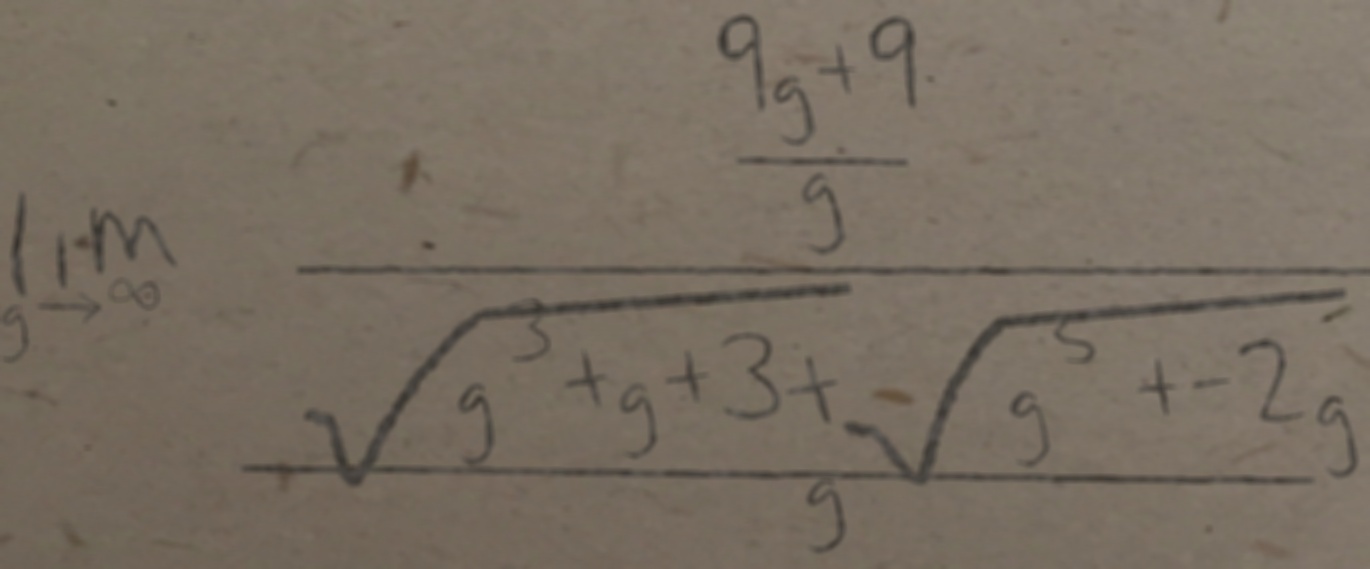 \lim_{g \to \infty} \frac{\frac{9g+9}{g}}{\frac{\sqrt{g^3+g+3}+\sqrt{g^5+-2g}}{g}}